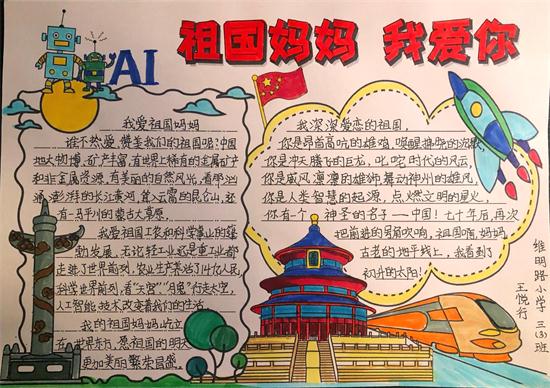 祖国妈妈 我爱你
AI
我爱祖国妈妈
谁不热爱、赞美我们的祖国呢?中国
地大物博、矿产丰富,有世界上稀有的金属矿产
和非金属资源,有美丽的自然风光,看那汹
涌澎湃的长江黄河,耸入云霄的昆仑山,还
有一马平川的蒙古大草原。
我爱祖国工农和科学事业的蓬
勃发展,无论轻工业还是重工业都
走进了世界前列,农业生产养活了14亿人民,
科学世界前列,看"天宫""月宫"行走太空,
人工智能技术改变着我们的生活。
我的祖国妈妈屹立
在世界东方,愿祖国的明天
更加美丽繁荣昌盛。
我深深爱恋的祖国,
你是昂首高吭的雄鸡,唤醒拂晓的沉默,
你是冲天腾飞的巨龙,叱咤时代的风云,
你是威风凛凛的雄狮,舞动神州的雄风,
你是人类智慧的起源,点燃文明的星火,
你有个神圣的名字——中国!七十年后,再次
把前进的号角吹响,祖国啊,妈妈
古老的地平线上,我看到了
初升的太阳!
维明路小学 三(3)班
王悦行